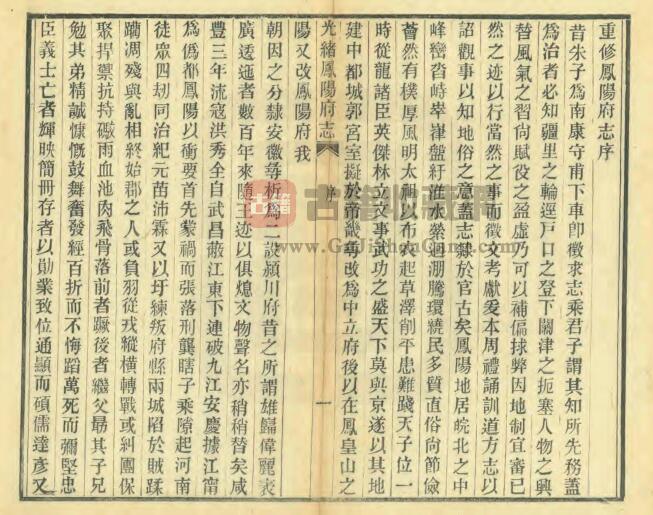 重修鳳陽府志序
昔朱子爲南康守甫下車卽徵求志乘君子謂其知所先務蓋
爲治者必知疆里之輪逕戸口之登下關津之扼塞人物之興
替風氣之習尙賦役之盈虛乃可以補偏捄弊因地制宜審已
然之迹以行當然之事而徵文考獻爰本周禮誦訓道方志以
詔觀事以知地俗之意蓋志隸於官古矣鳳陽地居皖北之中
峰巒沓峙崒嵂盤紆淮水縈迴淜騰環繞民多質直俗尙節儉
薈然有樸厚風明太祖以布衣起草澤削平患難踐天子位一
時從龍諸臣英傑林立文事武功之盛天下莫與京遂以其地
建中都城郭宮室擬於帝畿尋改爲中立府後以在鳳皇山之
光緒鳳陽府志
序
一
陽又改鳳陽府我
朝因之分隸安徽尋析爲二設潁川府昔之所謂雄歸偉麗袤
廣逶迤者數百年來隨王迹以俱熄文物聲名亦稍稍替矣咸
豐三年流寇洪秀全自武昌蔽江東下連破九江安慶據江甯
爲僞都鳳陽以衝要首先蒙禍而張落刑龔瞎子乘隙起河南
徒眾四刧同治紀元苗沛霖又以圩練叛府縣兩城陷於賊蹂
躪凋殘與亂相終始郡之人或負羽從戎縱橫轉戰或糾團保
聚捍禦抗持礮雨血池肉飛骨落前者蹶後者繼父勗其子兄
勉其弟精誠慷慨鼓舞奮發經百折而不悔蹈萬死而彌堅忠
臣義士亡者輝映簡冊存者以勛業致位通顯而碩儒達彥又
古籍收藏网
GuJiShouCang.Com